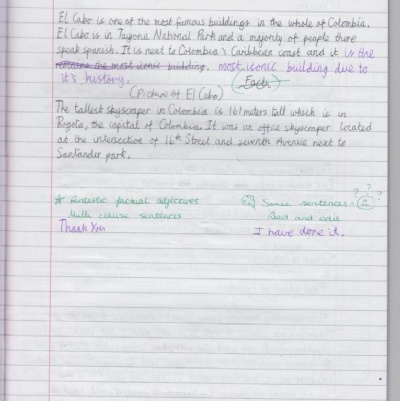 El Cabo is one of the most famous buildings in the whole of Colombia.
El Cabo is in Tayona National Park and a majority of people there
speak spanish. It is next to Colombia's Caribbean coast and it is the
remains the most iconic building. most iconic building due to
it's history.
Facts
(Picture of El Cabo)
The tallest skyscraper in Colombia is 161 meters tall which is in
Bogota, the capital of Colombia. It was an office skyscraper located
at the intersection of 16th Street and seventh Avenue next to
Santander park.
Fantastic factual adjectives
Multi clause sentences
Thank You
Some sentences = ? ? ?
Read and edit
I have done it.